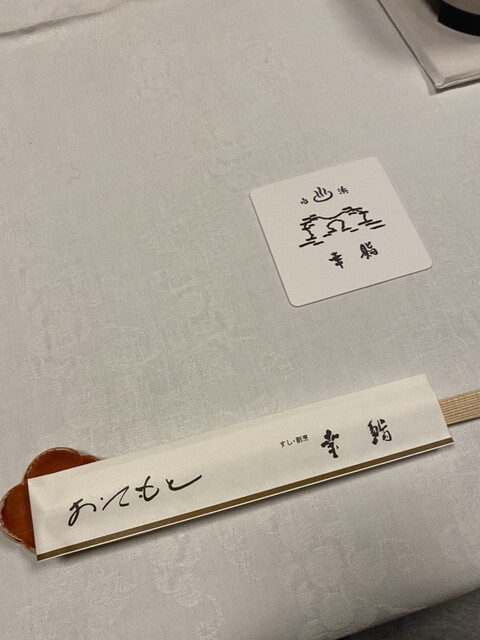 白 ♨ 浜
幸鮨
すし・割烹
幸鮨
おてもと